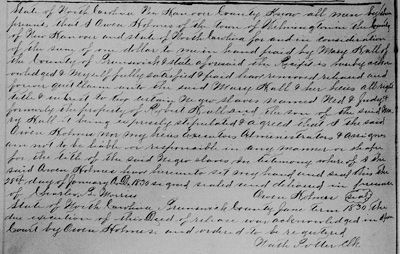 State of North Carolina New Hanover County Know all men by these
present, that I Owen Holmes of the town of Wilmington in the County
of New Hanover and state of North Carolina for and in consideration
of the sum of one dollar to me in hand paid by Mary Hall of
the County of Brunswick & State aforesaid the Receipt is hereby ackno
wledged & myself fully satisfied & paid have remised released and
forever quit claim unto the said Mary Hall & her heirs all right
title & interest to two certain Negro slaves named Ned &
formerly the property of Robert Hall said the son of the said Ma
ry Hall it being expressly stipulated & agreed that I the said
Owen Holmes nor my heirs Executors Administrators & assigns
are not to be liable or responsible in any manner or shape
for the title of the said Negro slaves In testimony whereof I the
said Owen Holmes have hereunto set my hand and seal this the
28th day of January A.D. 1830 signed sealed and delivered in presence
of Owen Holmes (seal)
State of North Carolina Brunswick County June term 1830 the
due execution of this Deed of release was acknowledged in open
Court by Owen Holmes and ordered to be registered
Potter Clk